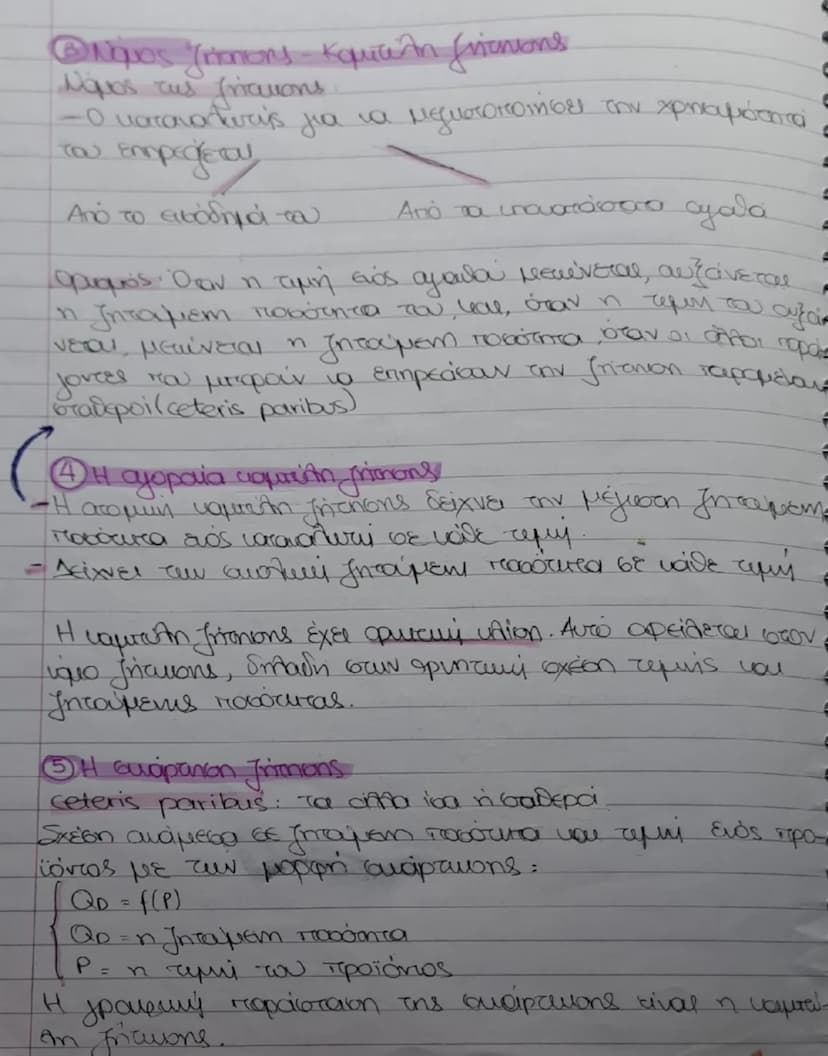 ③ Νόμος ζήτησης - Καμπύλη ζήτησης
Νόμος της ζήτησης
- Ο καταναλωτής για να μεγιστοποιήσει την χρησιμότητά
του επηρεάζεται
Από το εισόδημά του Από τα υποκατάστατα αγαθά
Ορισμός: Όταν η τιμή ενός αγαθού μειώνεται, αυξάνεται
η ζητούμενη ποσότητα του, και, όταν η τιμή του αυξά-
νεται, μειώνεται η ζητούμενη ποσότητα, όταν οι άλλοι παρά-
γοντες που μπορούν να επηρεάσουν την ζήτηση παραμένουν
σταθεροί (ceteris paribus)
④ Η αγοραία καμπύλη ζήτησης
- Η ατομική καμπύλη ζήτησης δείχνει την μέγιστη ζητούμενη
ποσότητα ενός καταναλωτή σε κάθε τιμή.
- Δείχνει την συνολική ζητούμενη ποσότητα σε κάθε τιμή
Η καμπύλη ζήτησης έχει αρνητική κλίση. Αυτό οφείλεται στον
νόμο ζήτησης, δηλαδή στην αρνητική σχέση τιμής και
ζητούμενης ποσότητας.
⑤ Η συνάρτηση ζήτησης
ceteris paribus: τα άλλα ίσα ή σταθερά
Σχέση ανάμεσα σε ζητούμενη ποσότητα και τιμή ενός προ-
ϊόντος με την μορφή συνάρτησης:
QD = f(P)
QD = η ζητούμενη ποσότητα
P = η τιμή του προϊόντος
Η γραφική παράσταση της συνάρτησης είναι η καμπύ-
λη ζήτησης.